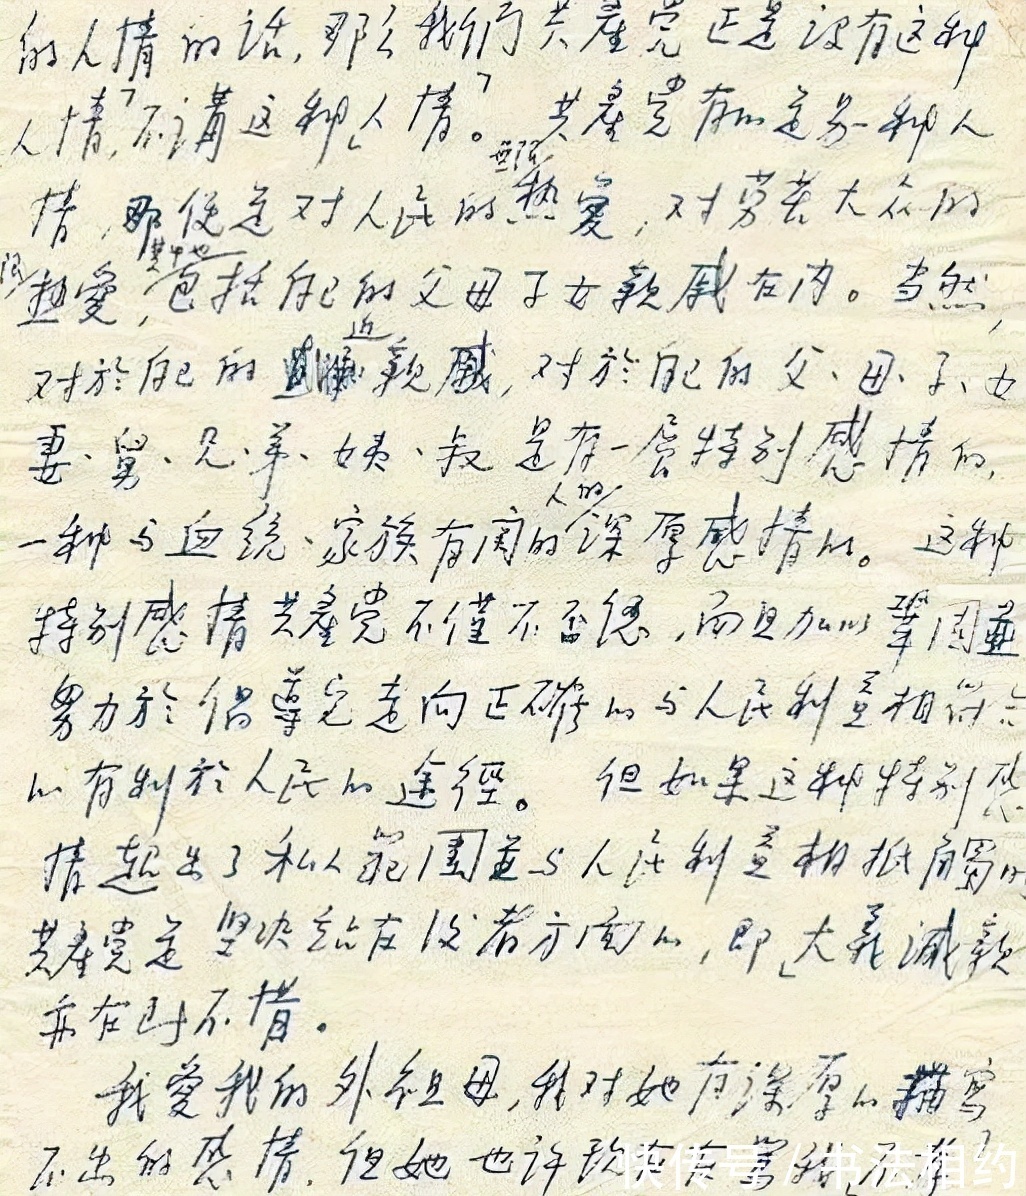 的人情的话，那么我们共產党正是没有这种
人情」，不講这种「人情」。共產党有的是另一种人
情，那便是对人民的無限热爱，对劳苦大众的
限热愛，其中也包括自己的父母子女親戚在内。当然，
对於自己的近親戚，对於自己的父、母、子、女
妻、舅、兄、弟、姨、叔是有一层特别感情的，
一种与血统、家族有関的人的深厚感情的。这种
特别感情共產党不僅不否認，而且加以鞏固並
努力於倡導它走向正確的与人民利益相符合
的有利於人民的途徑。但如果这种特别感
情超出了私人範圍並与人民利益相抵觸时
共產党是坚决站在後者方面的，即「大義滅親
亦在所不惜。
我愛我的外祖母，我对她有深厚的描寫
不出的感情，但她也许现在在罵我不孝
快传号/书法相约